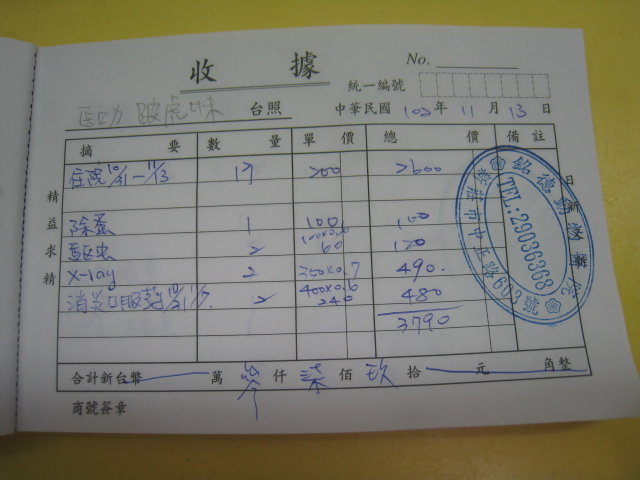 收據
No.
統一編號
台照
中華民國 102年 11月 13日
摘要 數量 單價 總價 備註
住院 10/31-11/13 13 200 2600
除蚤 1 100 100
驅虫 2 100x0.6 60 120
X-ray 2 350x0.7 490.
消炎口服藥 2 400x0.6 240 480
3790
合計新台幣 萬 參仟 柒佰 玖拾 元 角整
商號簽章
精益求精
TEL:29036368
新莊市中正路603號